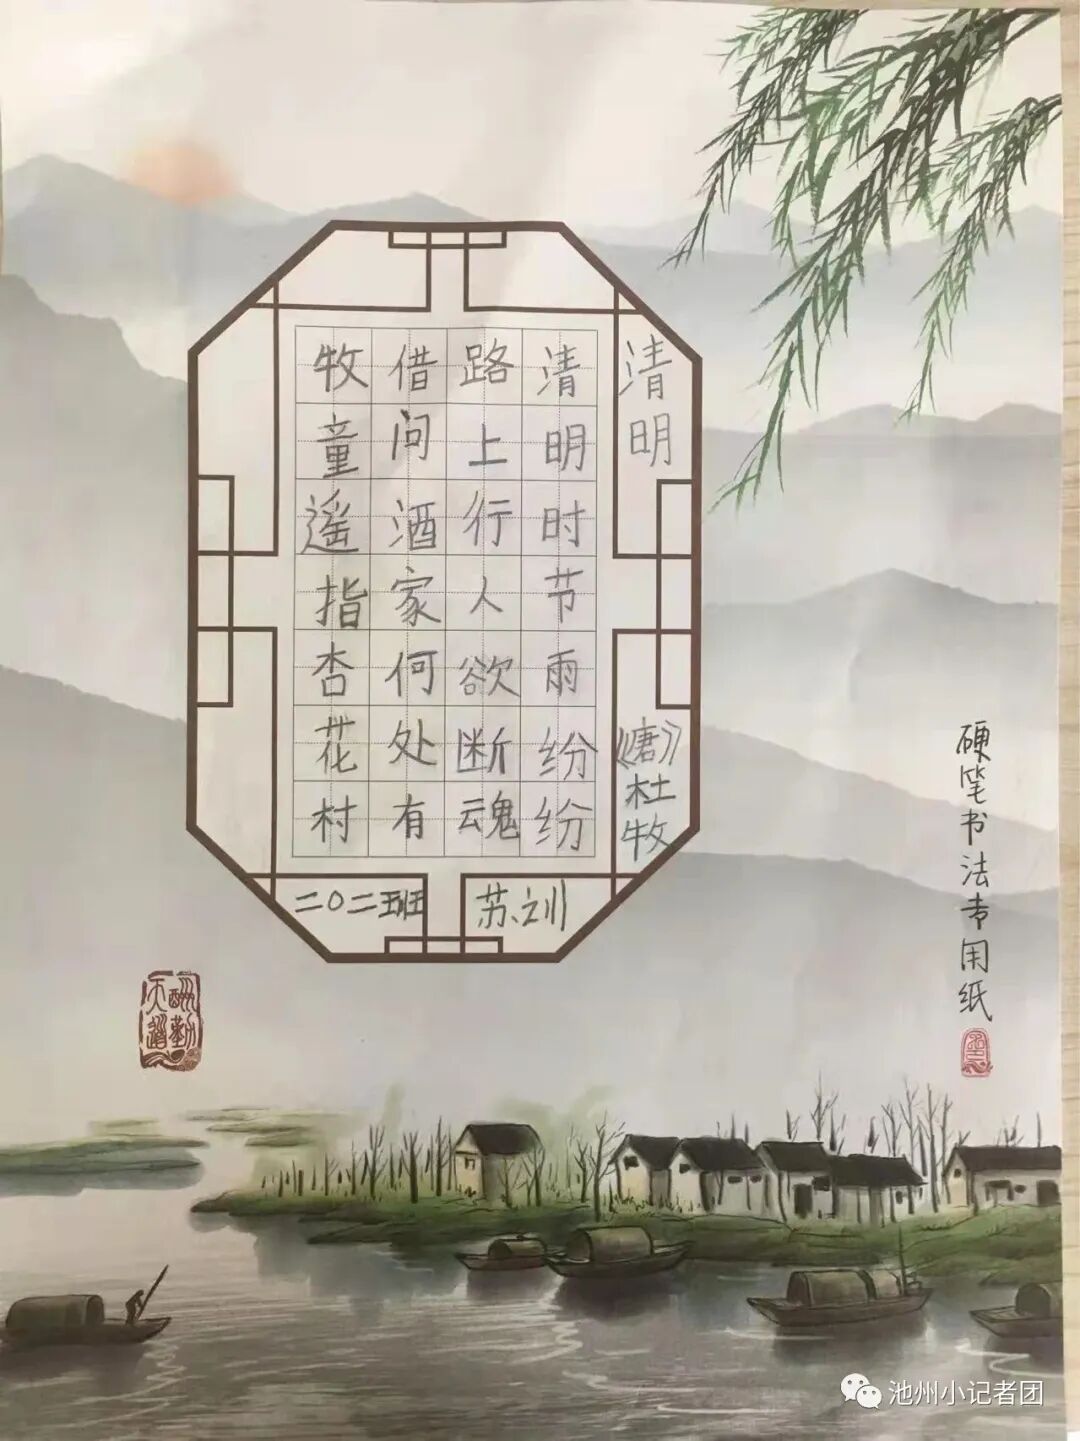 清明
《唐》杜牧
清明时节雨纷纷
路上行人欲断魂
借问酒家何处有
牧童遥指杏花村
二〇二五班
苏之训
硬笔书法专用纸
天道酬勤
池州小记者团